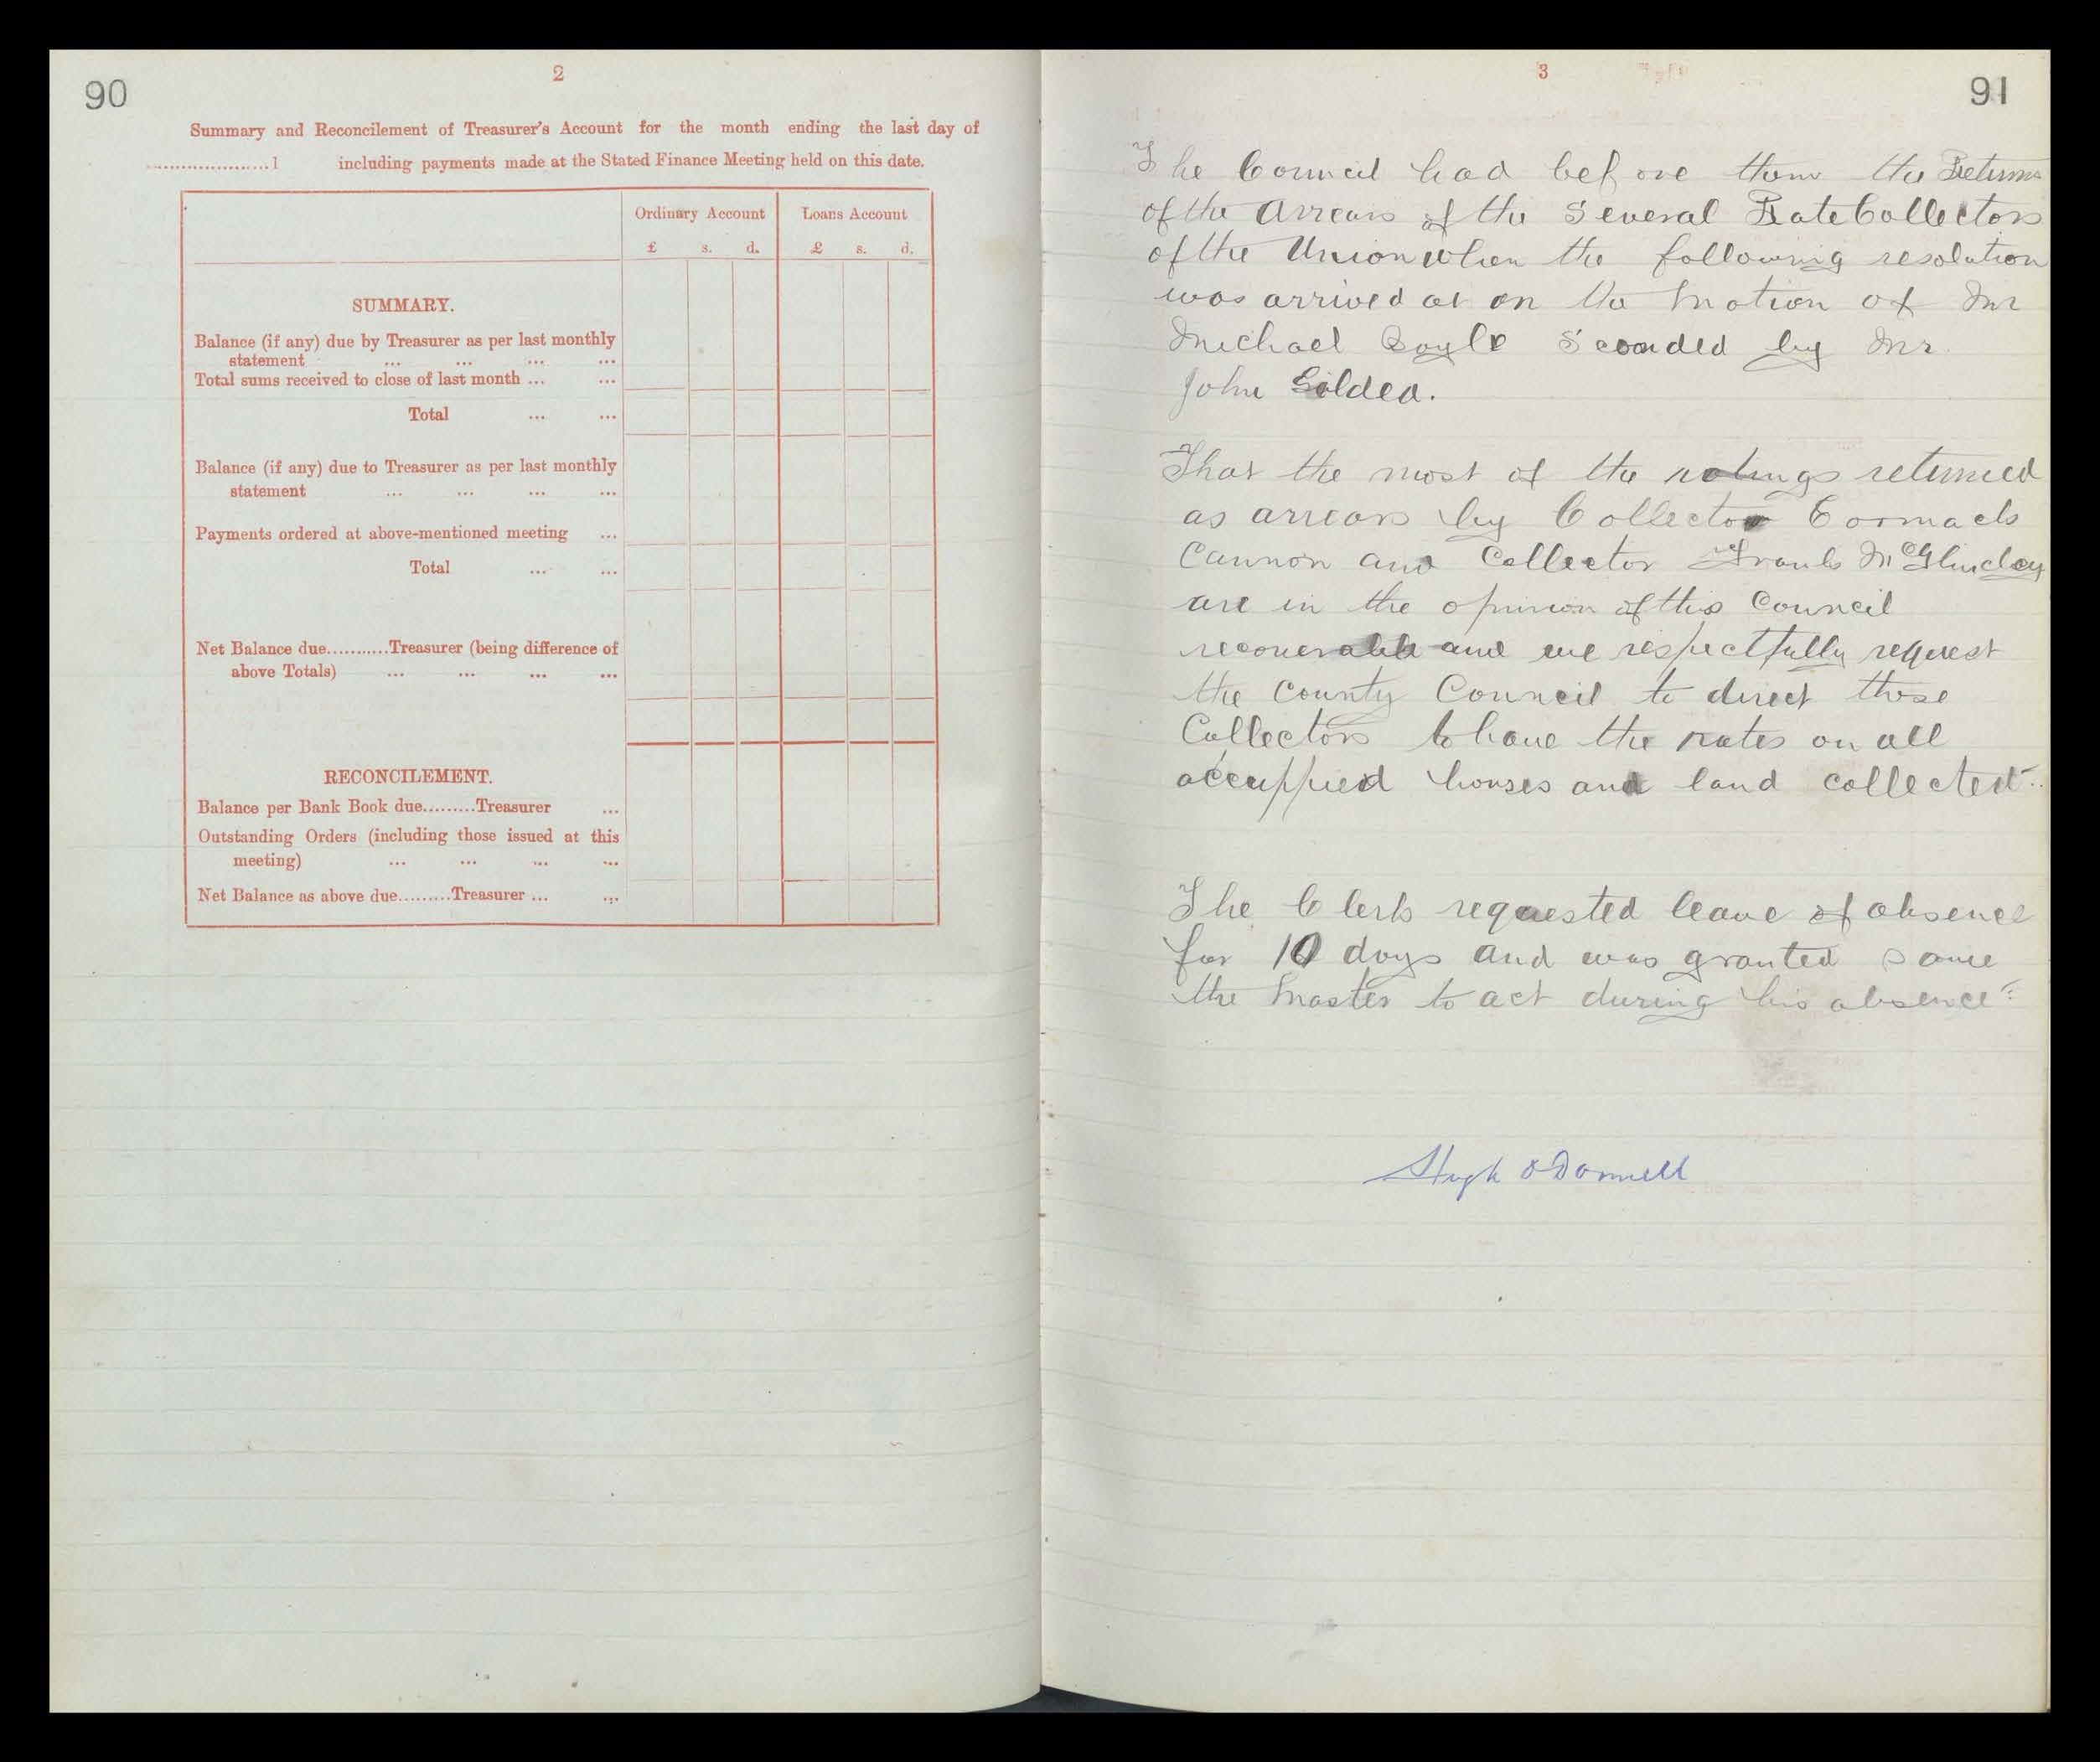 90
2
Summary and Reconcilement of Treasurer's Account for the month ending the last day of
....................1 including payments made at the Stated Finance Meeting held on this date.
Ordinary Account Loans Account
£ s. d. £ s. d.
SUMMARY.
Balance (if any) due by Treasurer as per last monthly
statement ... ... ... ...
Total sums received to close of last month ... ...
Total ... ...
Balance (if any) due to Treasurer as per last monthly
statement ... ... ... ...
Payments ordered at above-mentioned meeting ...
Total ... ...
Net Balance due...........Treasurer (being difference of
above Totals) ... ... ... ...
RECONCILEMENT.
Balance per Bank Book due.........Treasurer ...
Outstanding Orders (including those issued at this
meeting) ... ... ... ...
Net Balance as above due.........Treasurer ... ...
3
91
The Council had before them the Returns
of the Arrears of the Several Rate Collectors
of the Union when the following resolution
was arrived at on the motion of Mr
Michael Boyle Seconded by Mr
John Gildea.
That the most of the ratings returned
as arrears by Collector Cormack
Cannon and Collector Frank McGlinchey
are in the opinion of this Council
recoverable and we respectfully request
the County Council to direct those
Collectors to have the rates on all
occuppied houses and land collected..
The Clerk requested leave of absence
for 10 days and was granted same
the Master to act during his absence
Hugh O'Donnell